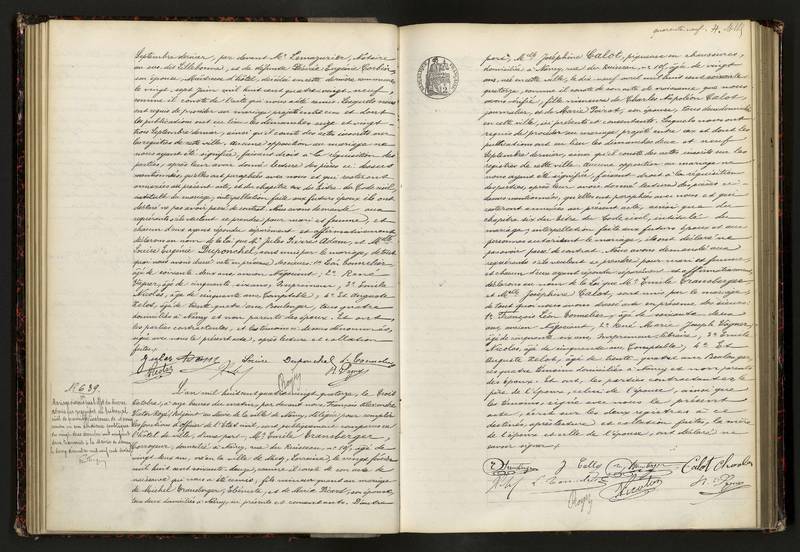 Septembre dernier, par devant Me Lemazurier, Notaire
son épouse, Maîtresse d'hôtel, décédée en cette dernière commune
le vingt sept juin mil huit cent quatre vingt neuf,
comme il conste de l'acte qui nous a été remis. Lesquels nous
ont requis de procéder au mariage projeté entre eux et dont
les publications ont eu lieu les dimanches seize et vingt-
trois Septembre dernier, ainsi qu'il conste des actes inscrits sur
les registres de cette ville, aucune opposition au mariage ne
nous ayant été signifiée, faisant droit à la réquisition des
parties, après leur avoir donné lecture des pièces ci-dessus
mentionnées, qu'elles ont paraphées avec nous et qui resteront
annexées au présent acte, et du chapitre six du titre du Code civil
intitulé du mariage, interpellation faite aux futurs époux ils ont
déclaré ne pas avoir passé de contrat. Nous avons demandé aux
représentés s'ils veulent se prendre pour mari et femme, et
chacun d'eux ayant répondu séparément et affirmativement
déclarons au nom de la loi que Mr Jules Pierre Adam, et Mlle
Louise Eugénie Duponchel, sont unis par le mariage, de tout
quoi nous avons dressé acte en présence des sieurs: 1° Léon Connelier
âgé de soixante deux ans, ancien Négociant; 2° René
âgé de cinquante six ans, Imprimeur; 3° Emile
Nicolas, âgé de cinquante ans, Comptable; 4° Et Auguste
Zelot, âgé de trente quatre ans, Boulanger, tous quatre
domiciliés à Nancy et non parents des époux. Et ont,
les parties contractantes, et les témoins ci-dessus dénommés,
signé avec nous le présent acte, après lecture et collation
faites.
Jules Adam Louise Duponchel L. Connelier
Nicolas
N° 639.
L'an mil huit cent quatre vingt quatorze, le trois
Octobre, à onze heures du matin, par devant nous, François Alexandre
Victor Rogé, Adjoint au Maire de la ville de Nancy, délégué pour remplir
les fonctions d'officier de l'état civil, sont publiquement comparus en
l'hôtel de ville, d'une part: Mr Emile
domicilié à Nancy, rue du Ruisseau, n° 19, âgé de
vingt deux ans, né en la ville de Metz, Lorraine, le vingt
mil huit cent soixante douze, comme il conste de son acte de
naissance qui nous a été remis, fils mineur quant au mariage
de Michel Ebéniste, et de Marie son épouse,
tous deux domiciliés à Nancy, ici présents et consentants. D'autre
quarante neuf.
part, Mlle Joséphine Calot, piqueuse en chaussures,
domiciliée à Nancy, rue du Ruisseau, n° 19, âgée de vingt
ans, née en cette ville, le dix neuf avril mil huit cent soixante
quatorze, comme il conste de son acte de naissance que nous
avons vérifié, fille mineure de Charles Napoléon Calot,
journalier, et de Marie son épouse, tous deux domiciliés
en cette ville, ici présents et consentants. Lesquels nous ont
requis de procéder au mariage projeté entre eux et dont les
publications ont eu lieu les dimanches deux et neuf
Septembre dernier, ainsi qu'il conste des actes inscrits sur les
registres de cette ville, aucune opposition au mariage ne
nous ayant été signifiée, faisant droit à la réquisition
des parties, après leur avoir donné lecture des pièces ci-
dessus mentionnées, qu'elles ont paraphées avec nous et qui
resteront annexées au présent acte, ainsi que du
chapitre six du titre du Code civil, intitulé du
mariage, interpellation faite aux futurs époux et aux
personnes autorisant le mariage, ils ont déclaré ne
pas avoir passé de contrat. Nous avons demandé aux
représentés s'ils veulent se prendre pour mari et femme,
et chacun d'eux ayant répondu séparément et affirmativement,
déclarons au nom de la Loi que Mr Emile
et Mlle Joséphine Calot, sont unis par le mariage;
de tout quoi nous avons dressé acte en présence des sieurs:
1° François Léon Connelier, âgé de soixante deux
ans, ancien Négociant; 2° René Marie Joseph
âgé de cinquante six ans, Imprimeur libraire; 3° Emile
Nicolas, âgé de cinquante ans, Comptable; 4° Et
Auguste Zelot, âgé de trente quatre ans, Boulanger,
les quatre témoins domiciliés à Nancy et non parents
des époux. Et ont, les parties contractantes, le
père de l'époux, celui de l'épouse, ainsi que
les témoins, signé avec nous le présent
acte, écrit sur les deux registres à ce
destinés, après lecture et collation faites, la mère
de l'époux et celle de l'épouse, ont déclaré ne
savoir signer.
J. Calot Calot Charles
L. Connelier Nicolas